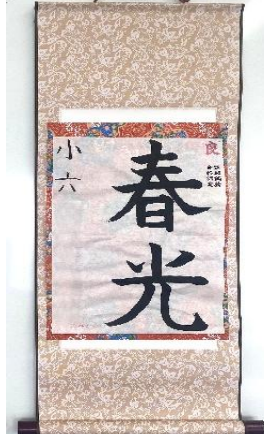 春光
小六
良